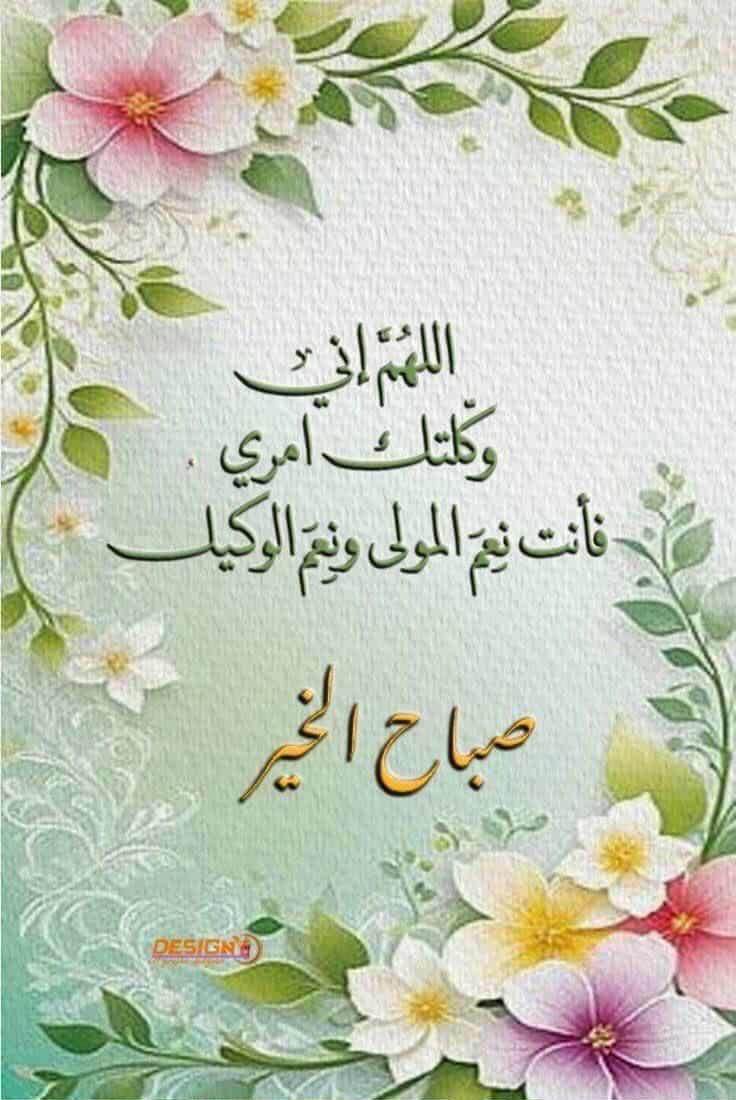 اللهُمَّ إني
وكّلتك امري
فأنت نِعمَ المولى ونِعمَ الوكيل
صباح الخير
DESIGN